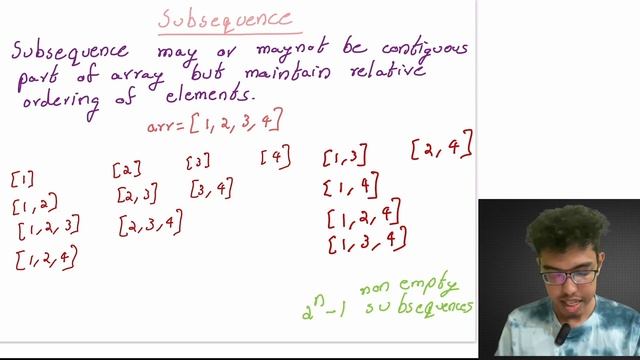 Subsequence
Subsequence may or maynot be contiguous
part of array but maintain relative
ordering of elements.
arr = [1, 2, 3, 4]
[1] [2] [3] [4] [1, 3] [2, 4]
[1, 2] [2, 3] [3, 4] [1, 4]
[1, 2, 3] [2, 3, 4] [1, 2, 4]
[1, 2, 4] [1, 3, 4]
2^n - 1 non empty
subsequences